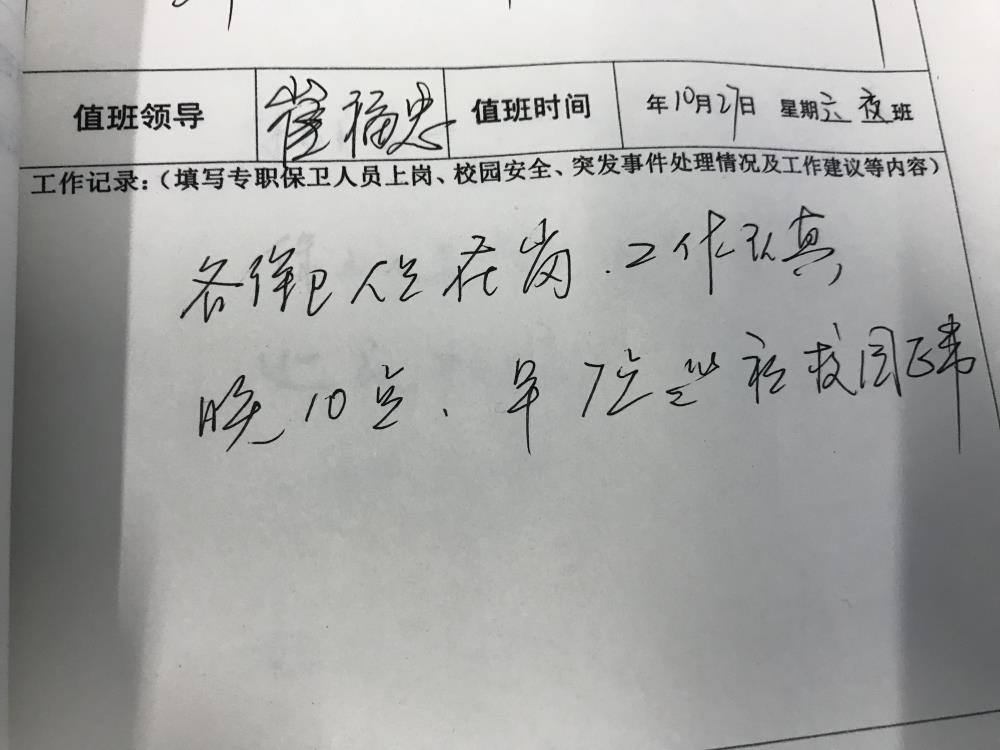 值班领导 崔福忠 值班时间 年10月27日 星期六夜班
工作记录：（填写专职保卫人员上岗、校园安全、突发事件处理情况及工作建议等内容）
各保卫人员在岗.工作认真
晚10点、早7点巡视校园正常